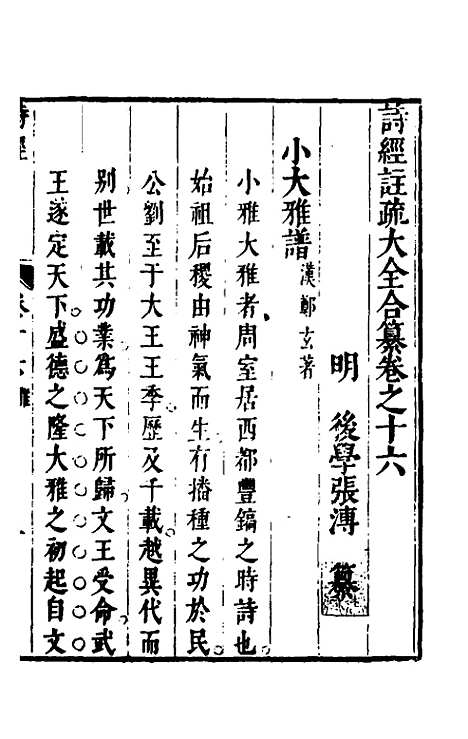 詩經註疏大全合纂卷之十六
明 後學張溥 纂
小大雅譜 漢鄭玄著
小雅大雅者周室居西都豐鎬之時詩也
始祖后稷由神氣而生有播種之功於民
公劉至于大王王季歷及千載越異代而
別世載其功業為天下所歸文王受命武
王遂定天下盛德之隆大雅之初起自文
詩經